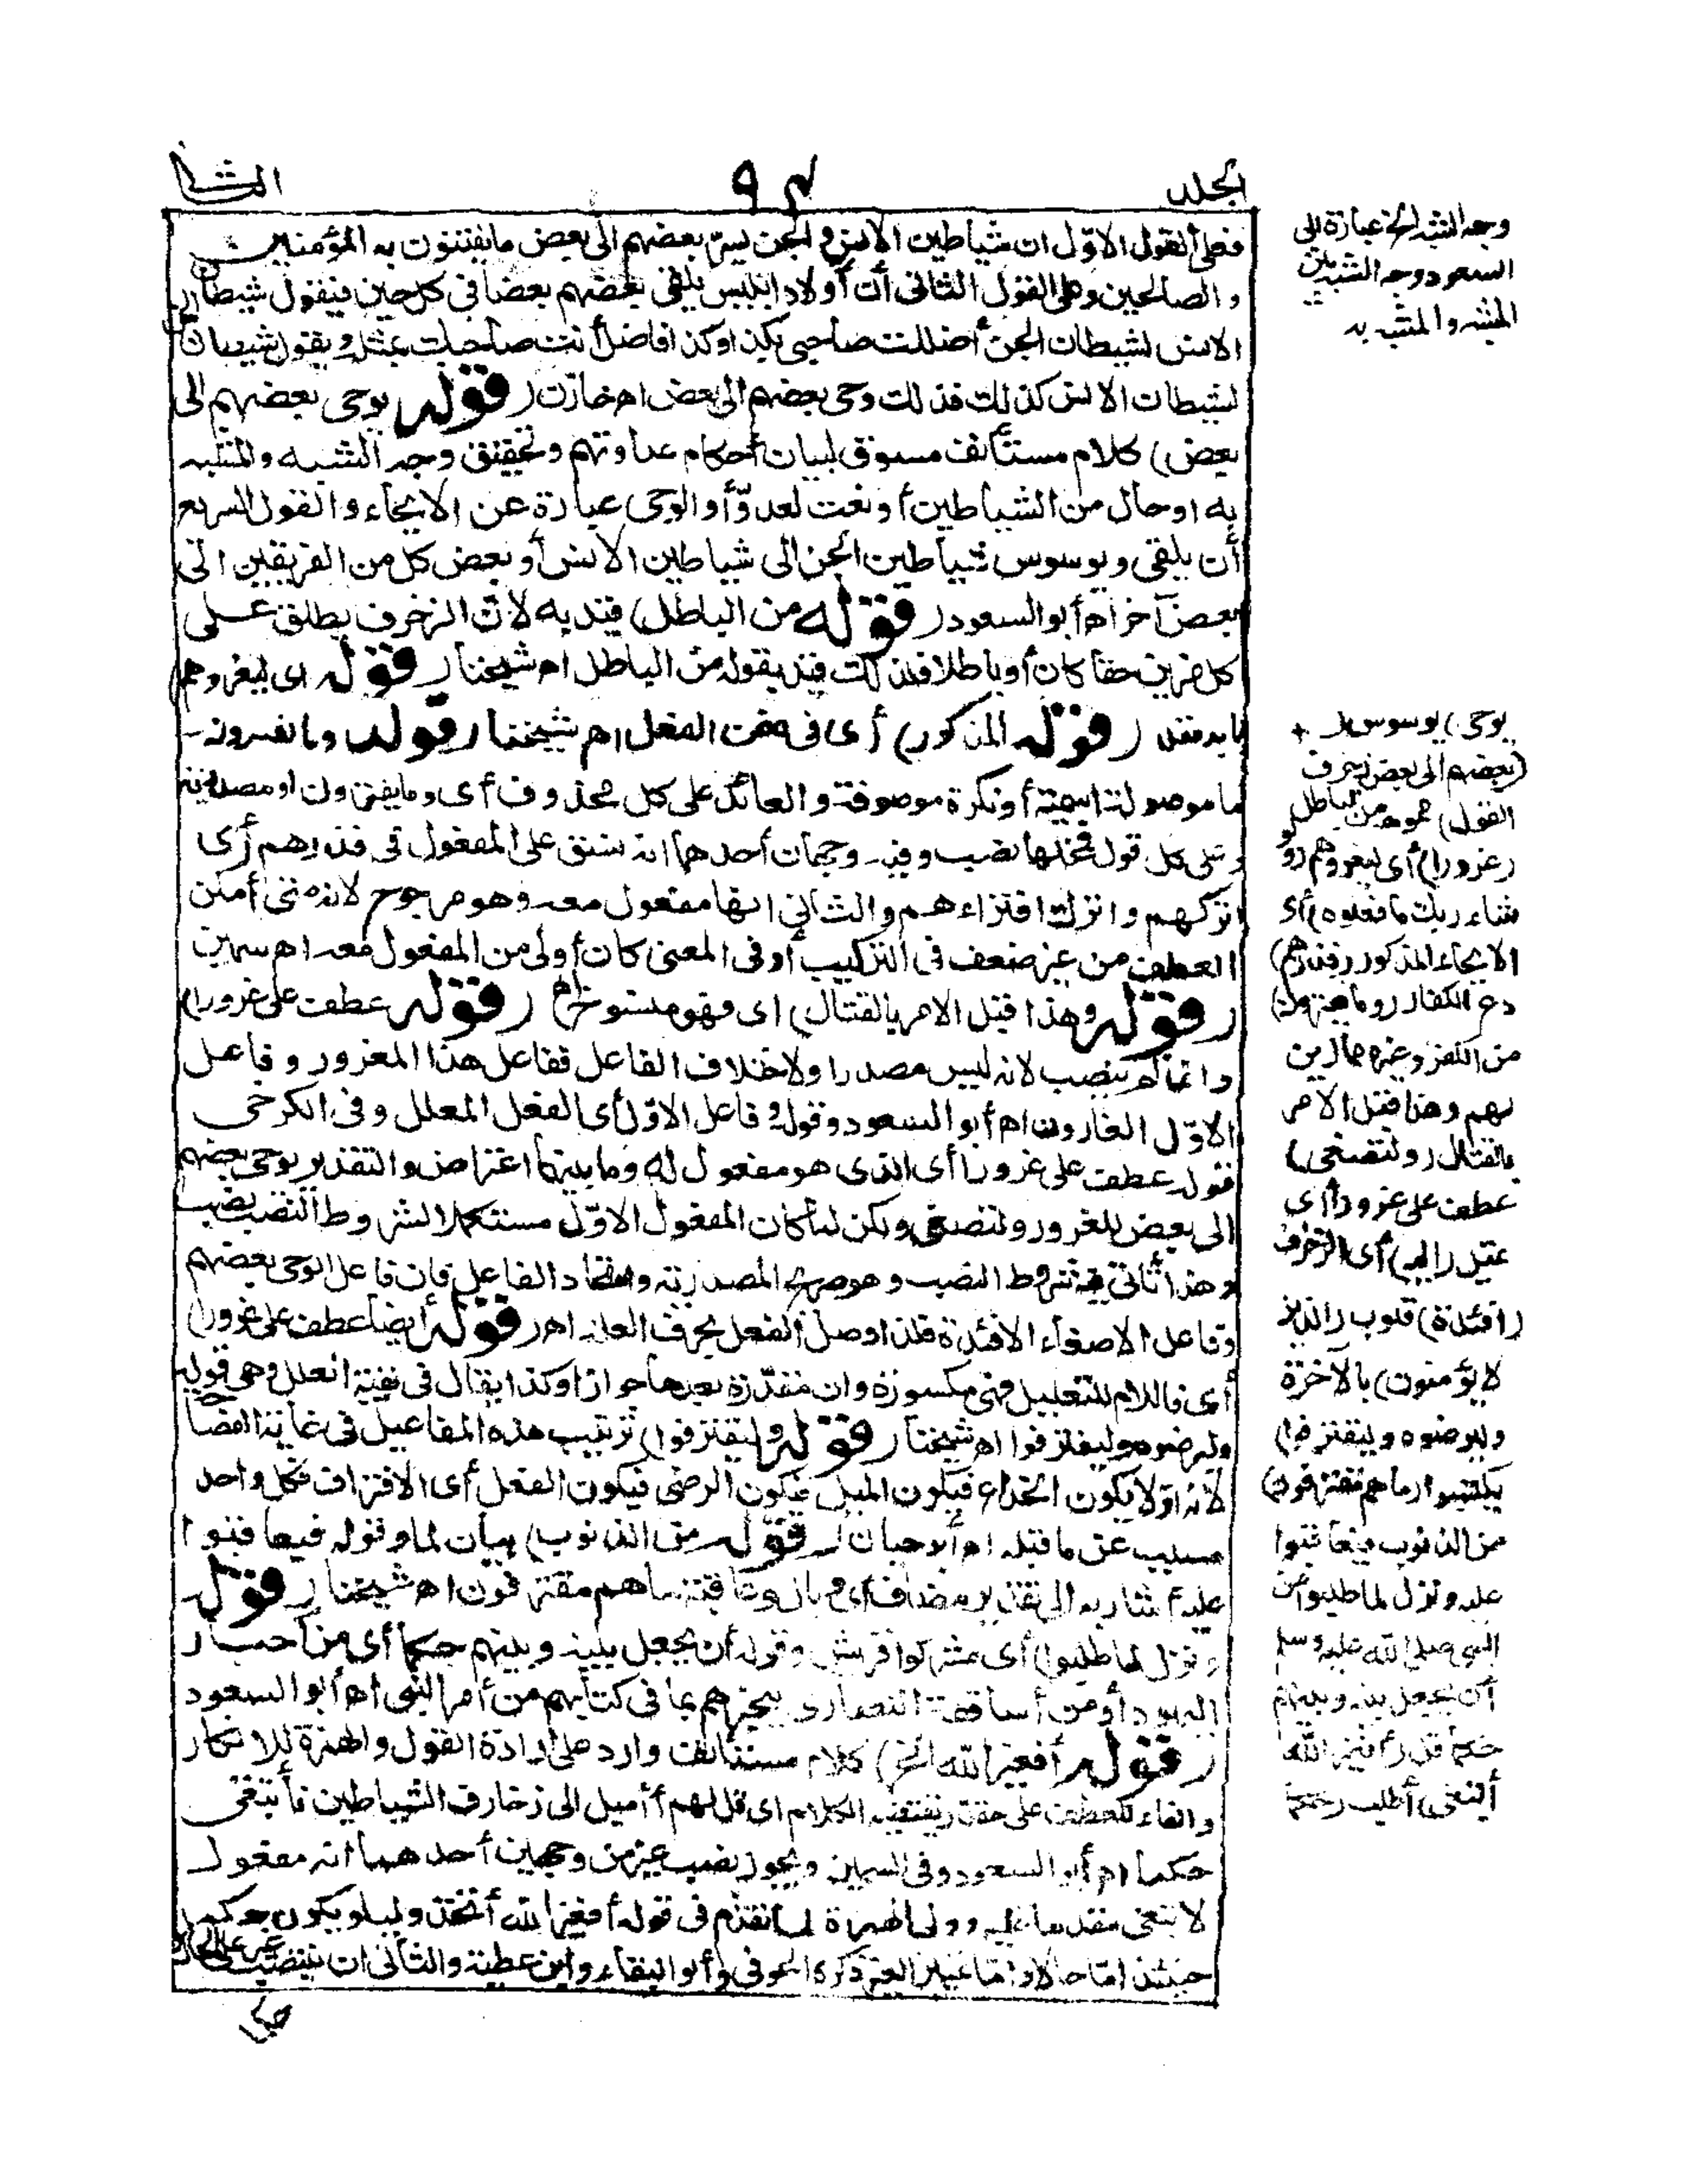 الجلد
٩٤
الثا
فعلى القول الاوّل ان شياطين الانس والجن يسرّ بعضهم الى بعض ما يفتنون به المؤمنين
والصالحين وعلى القول الثانى أن أولاد ابليس يلقى بعضهم بعضا فى كل حين فيقول شيطان
الانس لشيطان الجن أضللت صاحبى بكذا وكذا فاضل أنت صاحبك بمثله ويقول شيطان الجن
لشيطان الانس كذلك فذلك وحى بعضهم الى بعض اه خازن (قوله يوحى بعضهم الى
بعض) كلام مستأنف مسوق لبيان أحكام عداوتهم وتحقيق وجه الشبه والمشبه
به او حال من الشياطين أو نعت لعدوّا والوحى عبارة عن الايحاء والقول السريع
أن يلقى ويوسوس شياطين الجن الى شياطين الانس أو بعض كل من الفريقين الى
بعض آخر اه أبو السعود (قوله من الباطل) قيد به لان الزخرف يطلق على
كل مزين حقا كان أو باطلا فلذلك قيد بقوله من الباطل اه شيخنا (قوله اى ليغروهم)
(قوله المذكور) أى فى ضمن الفعل اه شيخنا (قوله وما يفترونه
ما موصولة اسمية أو نكرة موصوفة والعائد على كل محذوف أى وما يفترونه او مصدرية
وعلى كل قول فمحلها نصب وفيه وجهان أحدهما انه نسق على المفعول فى فذرهم أى
اتركهم واترك افتراءهم والثانى انها مفعول معه وهو مرجوح لانه متى أمكن
العطف من غير ضعف فى التركيب أو فى المعنى كان أولى من المفعول معه اه سمين
(قوله وهذا قبل الامر بالقتال) اى فهو منسوخ اه (قوله عطف على غرورا)
وانما لم ينصب لانه ليس مصدرا ولاختلاف الفاعل ففاعل هذا المغرور وفاعل
الاوّل الغارون اه أبو السعود وقوله وفاعل الاوّل أى الفعل المعلل وفى الكرخى
قوله عطف على غرورا أى الذى هو مفعول له وما بينهما اعتراض والتقدير يوحى بعضهم
الى بعض للغرور ولتصغى ولكن لما كان المفعول الاوّل مستكملا لشروط النصب نصب
وهذا شروط النصب وهو صريح المصدرية واتحاد الفاعل فان فاعل الوحى بعضهم
وفاعل الاصغاء الافئدة فلذا وصل الفعل بحرف العلة اه (قوله أيضا عطف على غرورا)
أى فاللام للتعليل فهى مكسورة وان مقدّرة بعدها جوازا وكذا يقال فى بقية العلل وهى قوله
وليرضوه وليقترفوا اه شيخنا (قوله وليقترفوا) ترتيب هذه المفاعيل فى غاية الفصاحة
لانه اوّلا يكون الخداع فيكون الميل فيكون الرضى فيكون الفعل أى الاقتراف فكل واحد
مسبب عن ما قبله اه أبو حيان (قوله من الذنوب) بيان لما وقوله فيعاقبوا
عليه أشار به الى تقدير مضاف أى وبال وعاقبة ما هم مقترفون اه شيخنا (قوله
ونزل لما طلبوا) أى مشركوا قريش وقوله أن يجعل بينه وبينهم حكما أى من أحبار
اليهود أو من أساقفة النصارى يخبرهم بما فى كتابهم من أمر النبى اه أبو السعود
(قوله أفغير الله الخ) كلام مستأنف وارد على ارادة القول والهمزة للانكار
والفاء للعطف على مقدر يقتضيه الكلام اى قل لهم أأميل الى زخارف الشياطين فأبتغى
حكما اه أبو السعود وفى السمين ويجوز نصب غير من وجهين أحدهما انه مفعول
لا بتغى مقدما عليه وولى الهمزة لما تقدّم فى قوله أفغير الله أتخذ وليا ويكون حكما
حينئذ امّا حالا وامّا تمييزا لغير ذكره الحوفى وأبو البقاء وابن عطية والثانى ان ينتصب غير على الحال
حكما
وجه الشبه الخ عبارة ابى
السعود وجه الشبه بين
المشبه والمشبه به
يوحى) يوسوس
(بعضهم الى بعض زخرف
القول) مموهه من الباطل
(غرورا) أى ليغروهم (ولو
شاء ربك ما فعلوه) أى
الايحاء المذكور (فذرهم)
دع الكفار (وما يفترون)
من الكفر وغيره مما زين
لهم وهذا قبل الامر
بالقتال (ولتصغى)
عطف على غرورا أى
تميل (اليه) أى الزخرف
(افئدة) قلوب (الذين
لا يؤمنون) بالاخرة
وليرضوه وليقترفوا)
يكتسبوا (ما هم مقترفون)
من الذنوب فيعاقبوا
عليه ونزل لما طلبوا من
النبى صلى الله عليه وسلم
أن يجعل بينه وبينهم
حكما قل (أفغير الله
أبتغى) أطلب (حكما